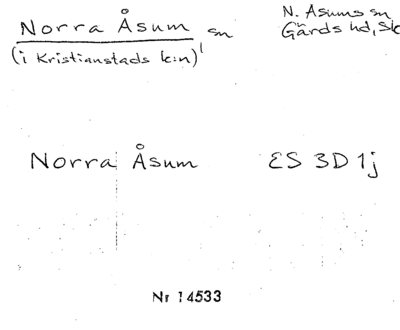 Norra Åsum sn
(i Kristianstads k:n)
N. Åsums sn
Gärds hd, Sk
Norra Åsum ES 3D 1j
Nr 14533